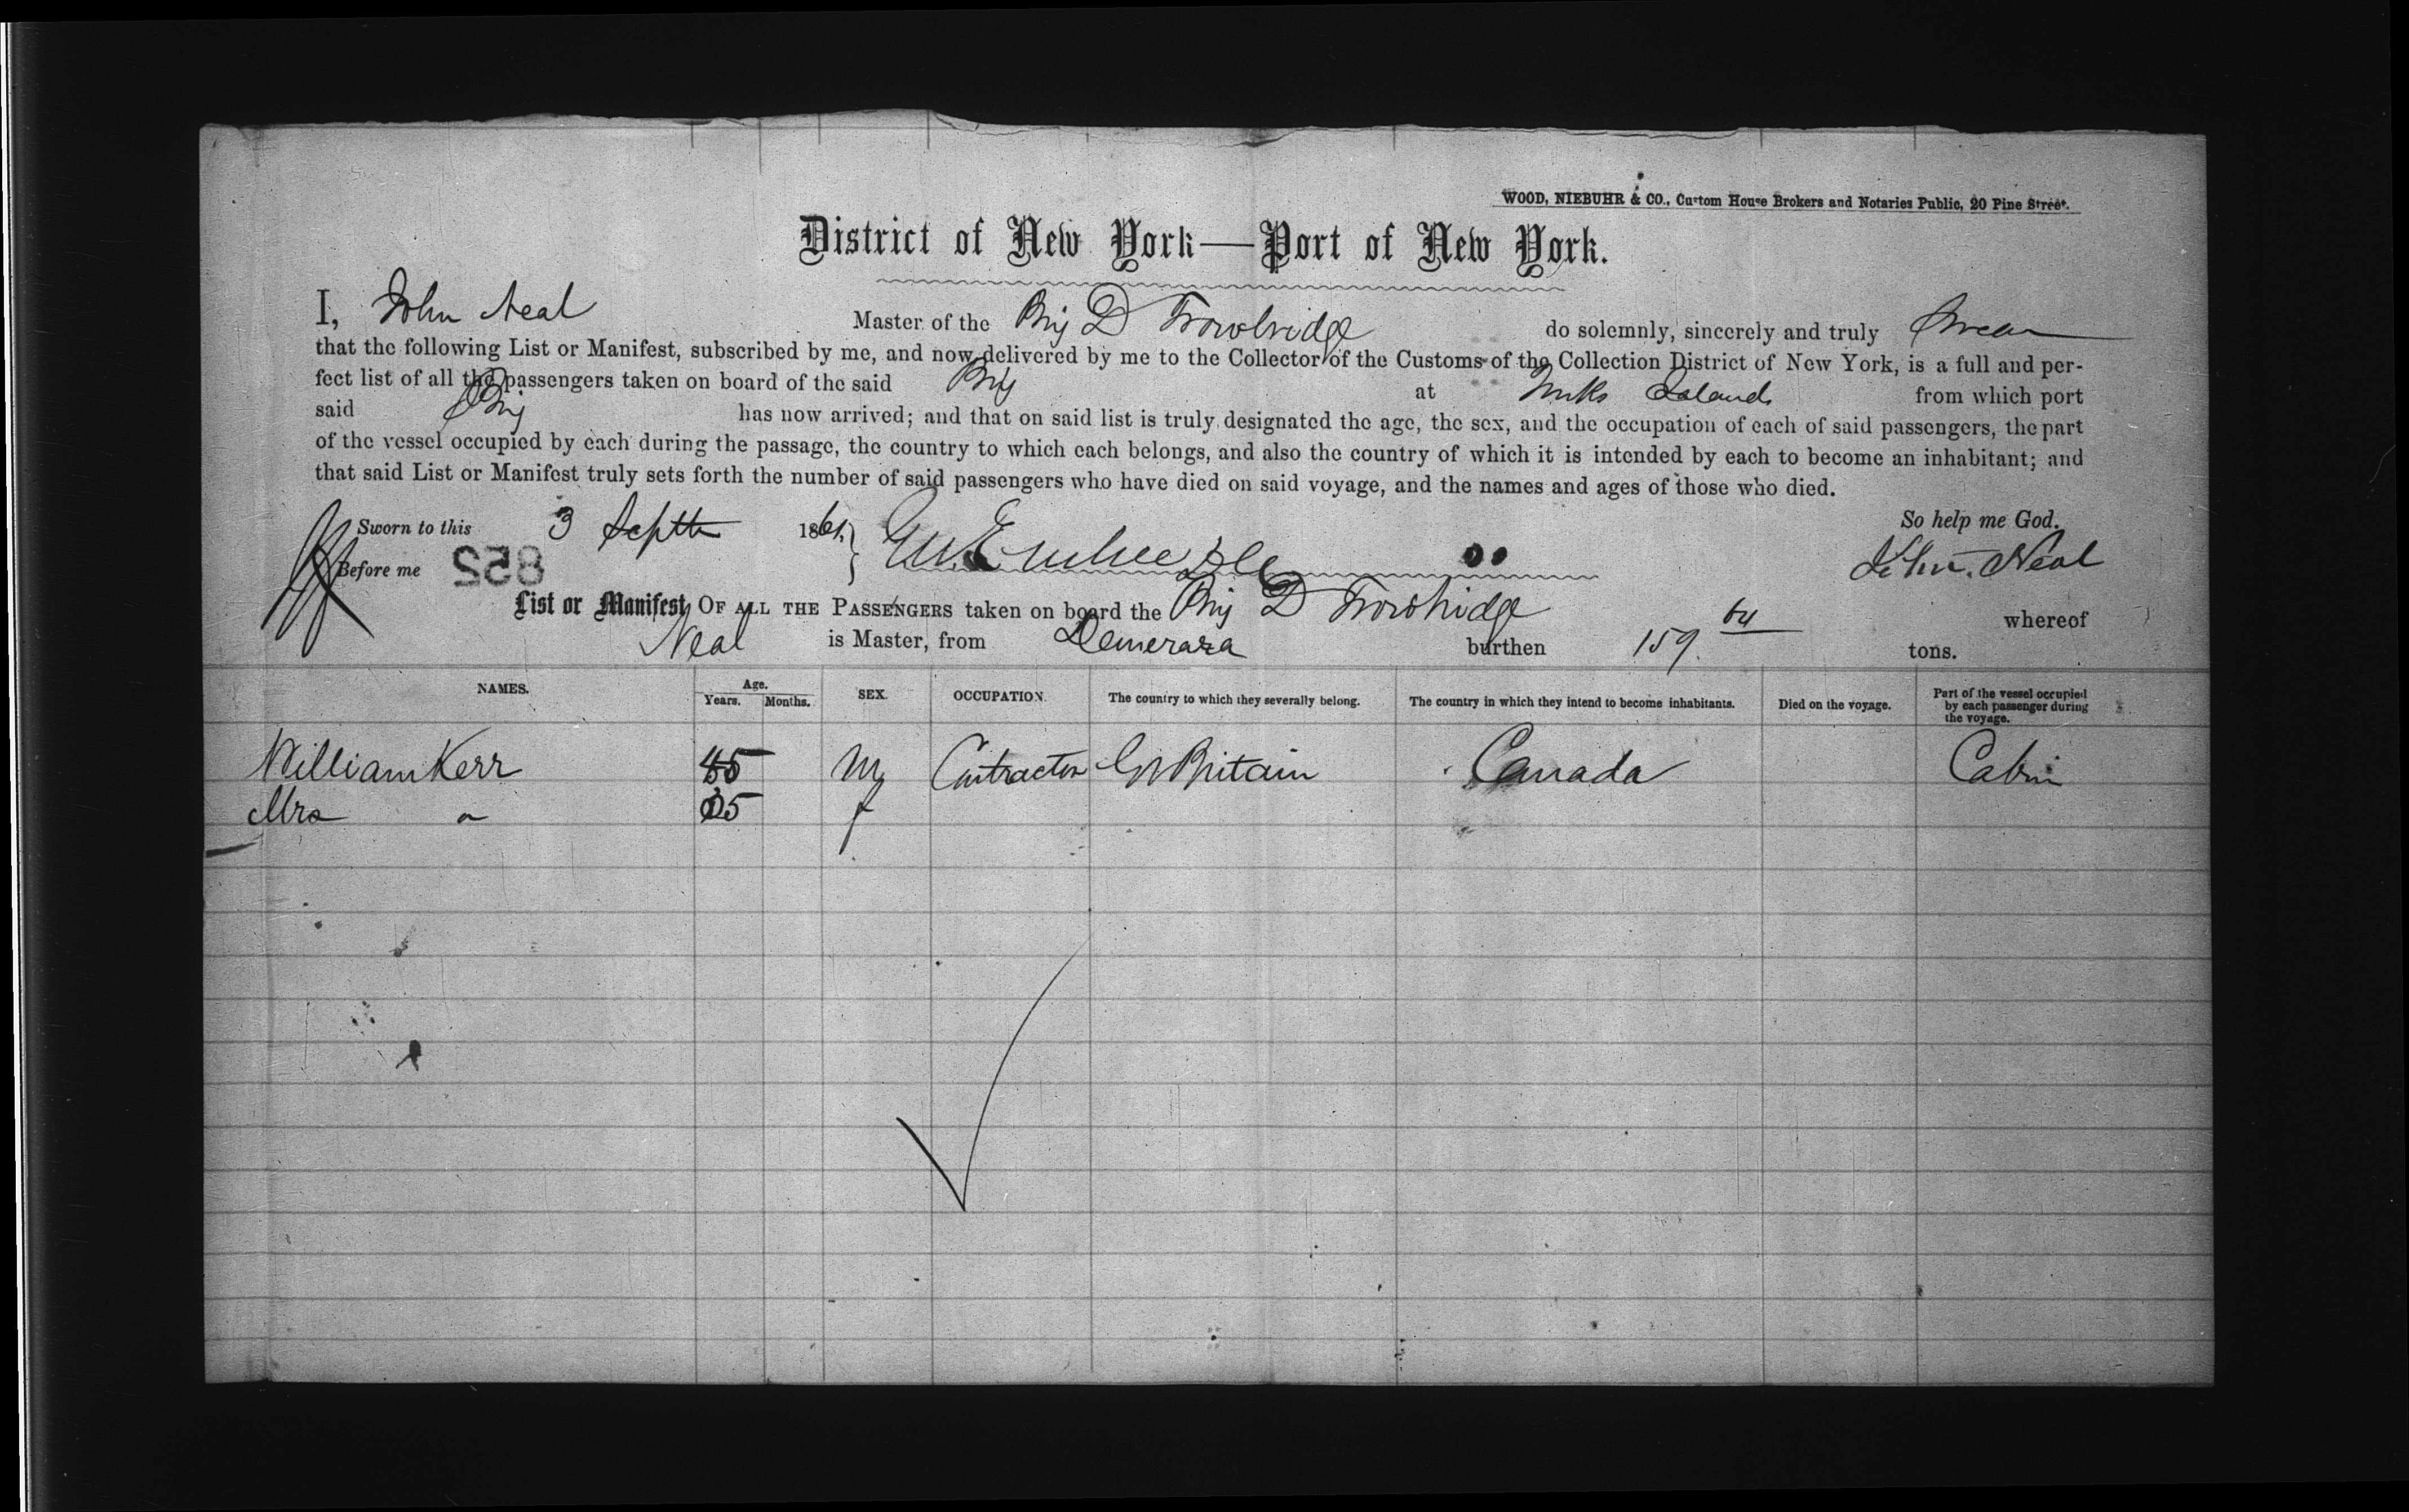 WOOD, NIEBUHR & CO., Custom House Brokers and Notaries Public, 20 Pine Street.
District of New York—Port of New York.
I, John Neal Master of the Brig D Trowbridge do solemnly, sincerely and truly Swear
that the following List or Manifest, subscribed by me, and now delivered by me to the Collector of the Customs of the Collection District of New York, is a full and per-
fect list of all the passengers taken on board of the said Brig at Turks Islands from which port
said Brig has now arrived; and that on said list is truly designated the age, the sex, and the occupation of each of said passengers, the part
of the vessel occupied by each during the passage, the country to which each belongs, and also the country of which it is intended by each to become an inhabitant; and
that said List or Manifest truly sets forth the number of said passengers who have died on said voyage, and the names and ages of those who died.
Sworn to this 3 Septr 1861. So help me God.
Before me 852 John Neal
List or Manifest OF ALL THE PASSENGERS taken on board the Brig D Trowbridge whereof
Neal is Master, from Demerara burthen 159 tons.
NAMES. Age. Years. Months. SEX. OCCUPATION. The country to which they severally belong. The country in which they intend to become inhabitants. Died on the voyage. Part of the vessel occupied by each passenger during the voyage.
William Kerr 45 M Contractor Gr Britain Canada Cabin
Mrs " 35 f